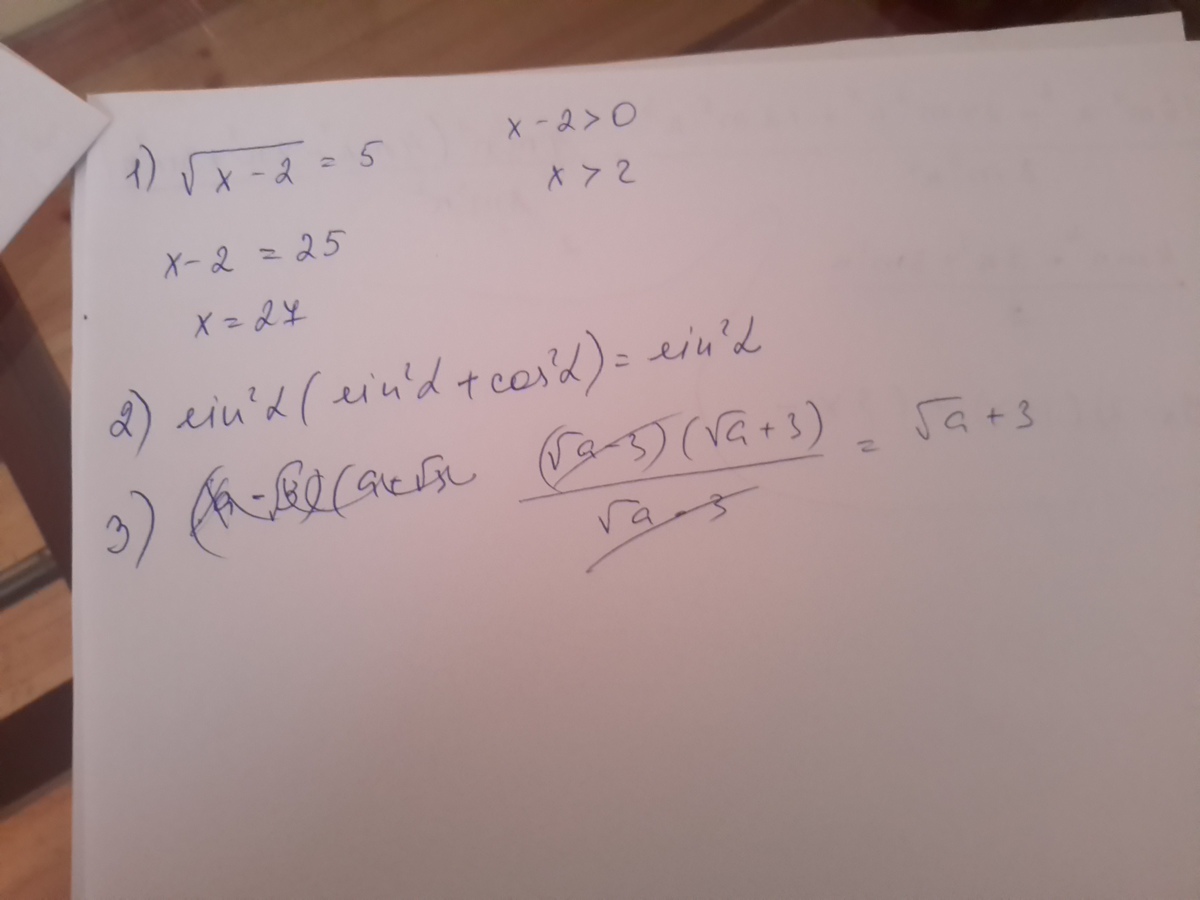 1) √(x-2) = 5
x-2>0
x>2
x-2 = 25
x = 27
2) sin²α (sin²α + cos²α) = sin²α
3) (√a-3)(√a+3) / √a-3 = √a+3